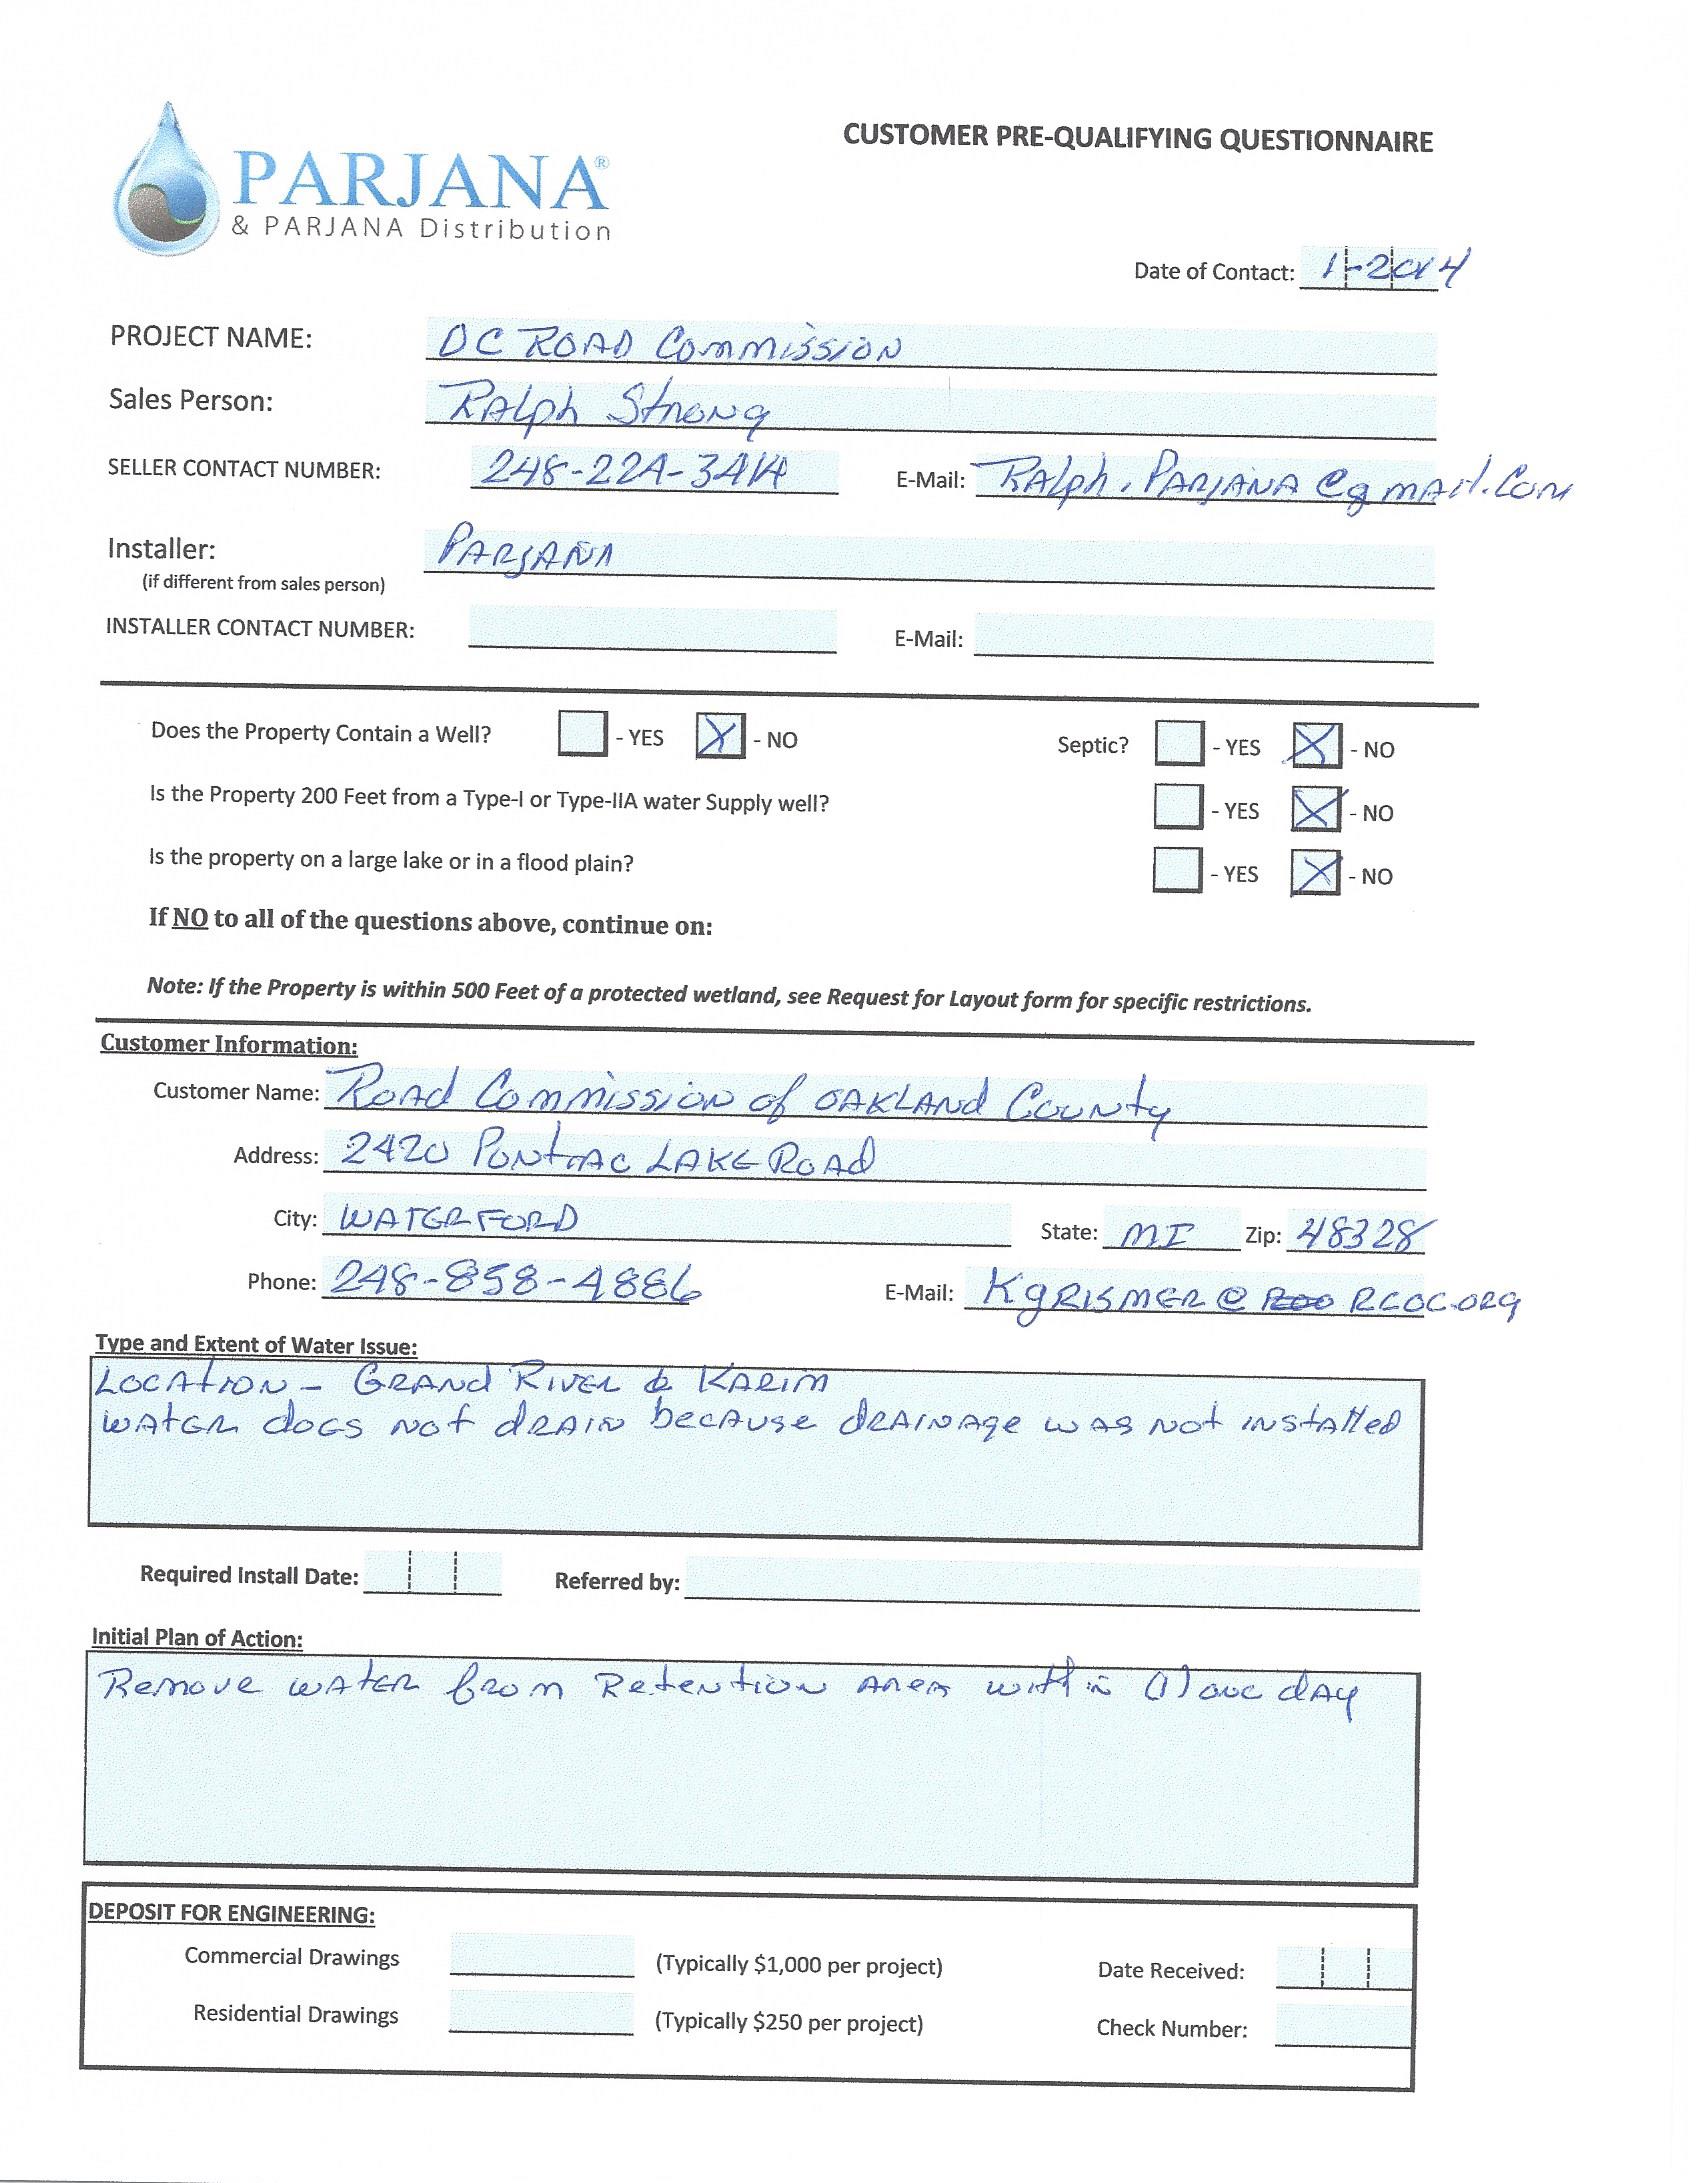 PARJANA®
& PARJANA Distribution
CUSTOMER PRE-QUALIFYING QUESTIONNAIRE
Date of Contact: 1-2014
PROJECT NAME: OC ROAD Commission
Sales Person: RALph Strong
SELLER CONTACT NUMBER: 248-224-3414 E-Mail: RALph.PARJANA@gmail.com
Installer: PARJANA
(if different from sales person)
INSTALLER CONTACT NUMBER: E-Mail:
Does the Property Contain a Well? - YES X - NO Septic? - YES X - NO
Is the Property 200 Feet from a Type-I or Type-IIA water Supply well? - YES X - NO
Is the property on a large lake or in a flood plain? - YES X - NO
If NO to all of the questions above, continue on:
Note: If the Property is within 500 Feet of a protected wetland, see Request for Layout form for specific restrictions.
Customer Information:
Customer Name: Road Commission of OAKLAND County
Address: 2420 PONTIAC LAKE ROAD
City: WATERFORD State: MI Zip: 48328
Phone: 248-858-4886 E-Mail: KgRISMER@RCOC.ORg
Type and Extent of Water Issue:
LOCATION - GRAND RIVER & KARIM
WATER does NOT dRAIN because dRAINAge was NOT INSTAlled
Required Install Date: Referred by:
Initial Plan of Action:
Remove WATER from Retention AREA within (1) one dAy
DEPOSIT FOR ENGINEERING:
Commercial Drawings (Typically $1,000 per project) Date Received:
Residential Drawings (Typically $250 per project) Check Number: